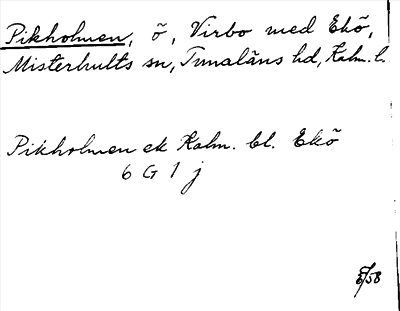 Pikholmen, ö, Virbo med Ekö,
Misterhults sn, Tunaläns hd, Kalm. l.
Pikholmen ek Kalm. bl. Ekö
6 G 1 j
5/58